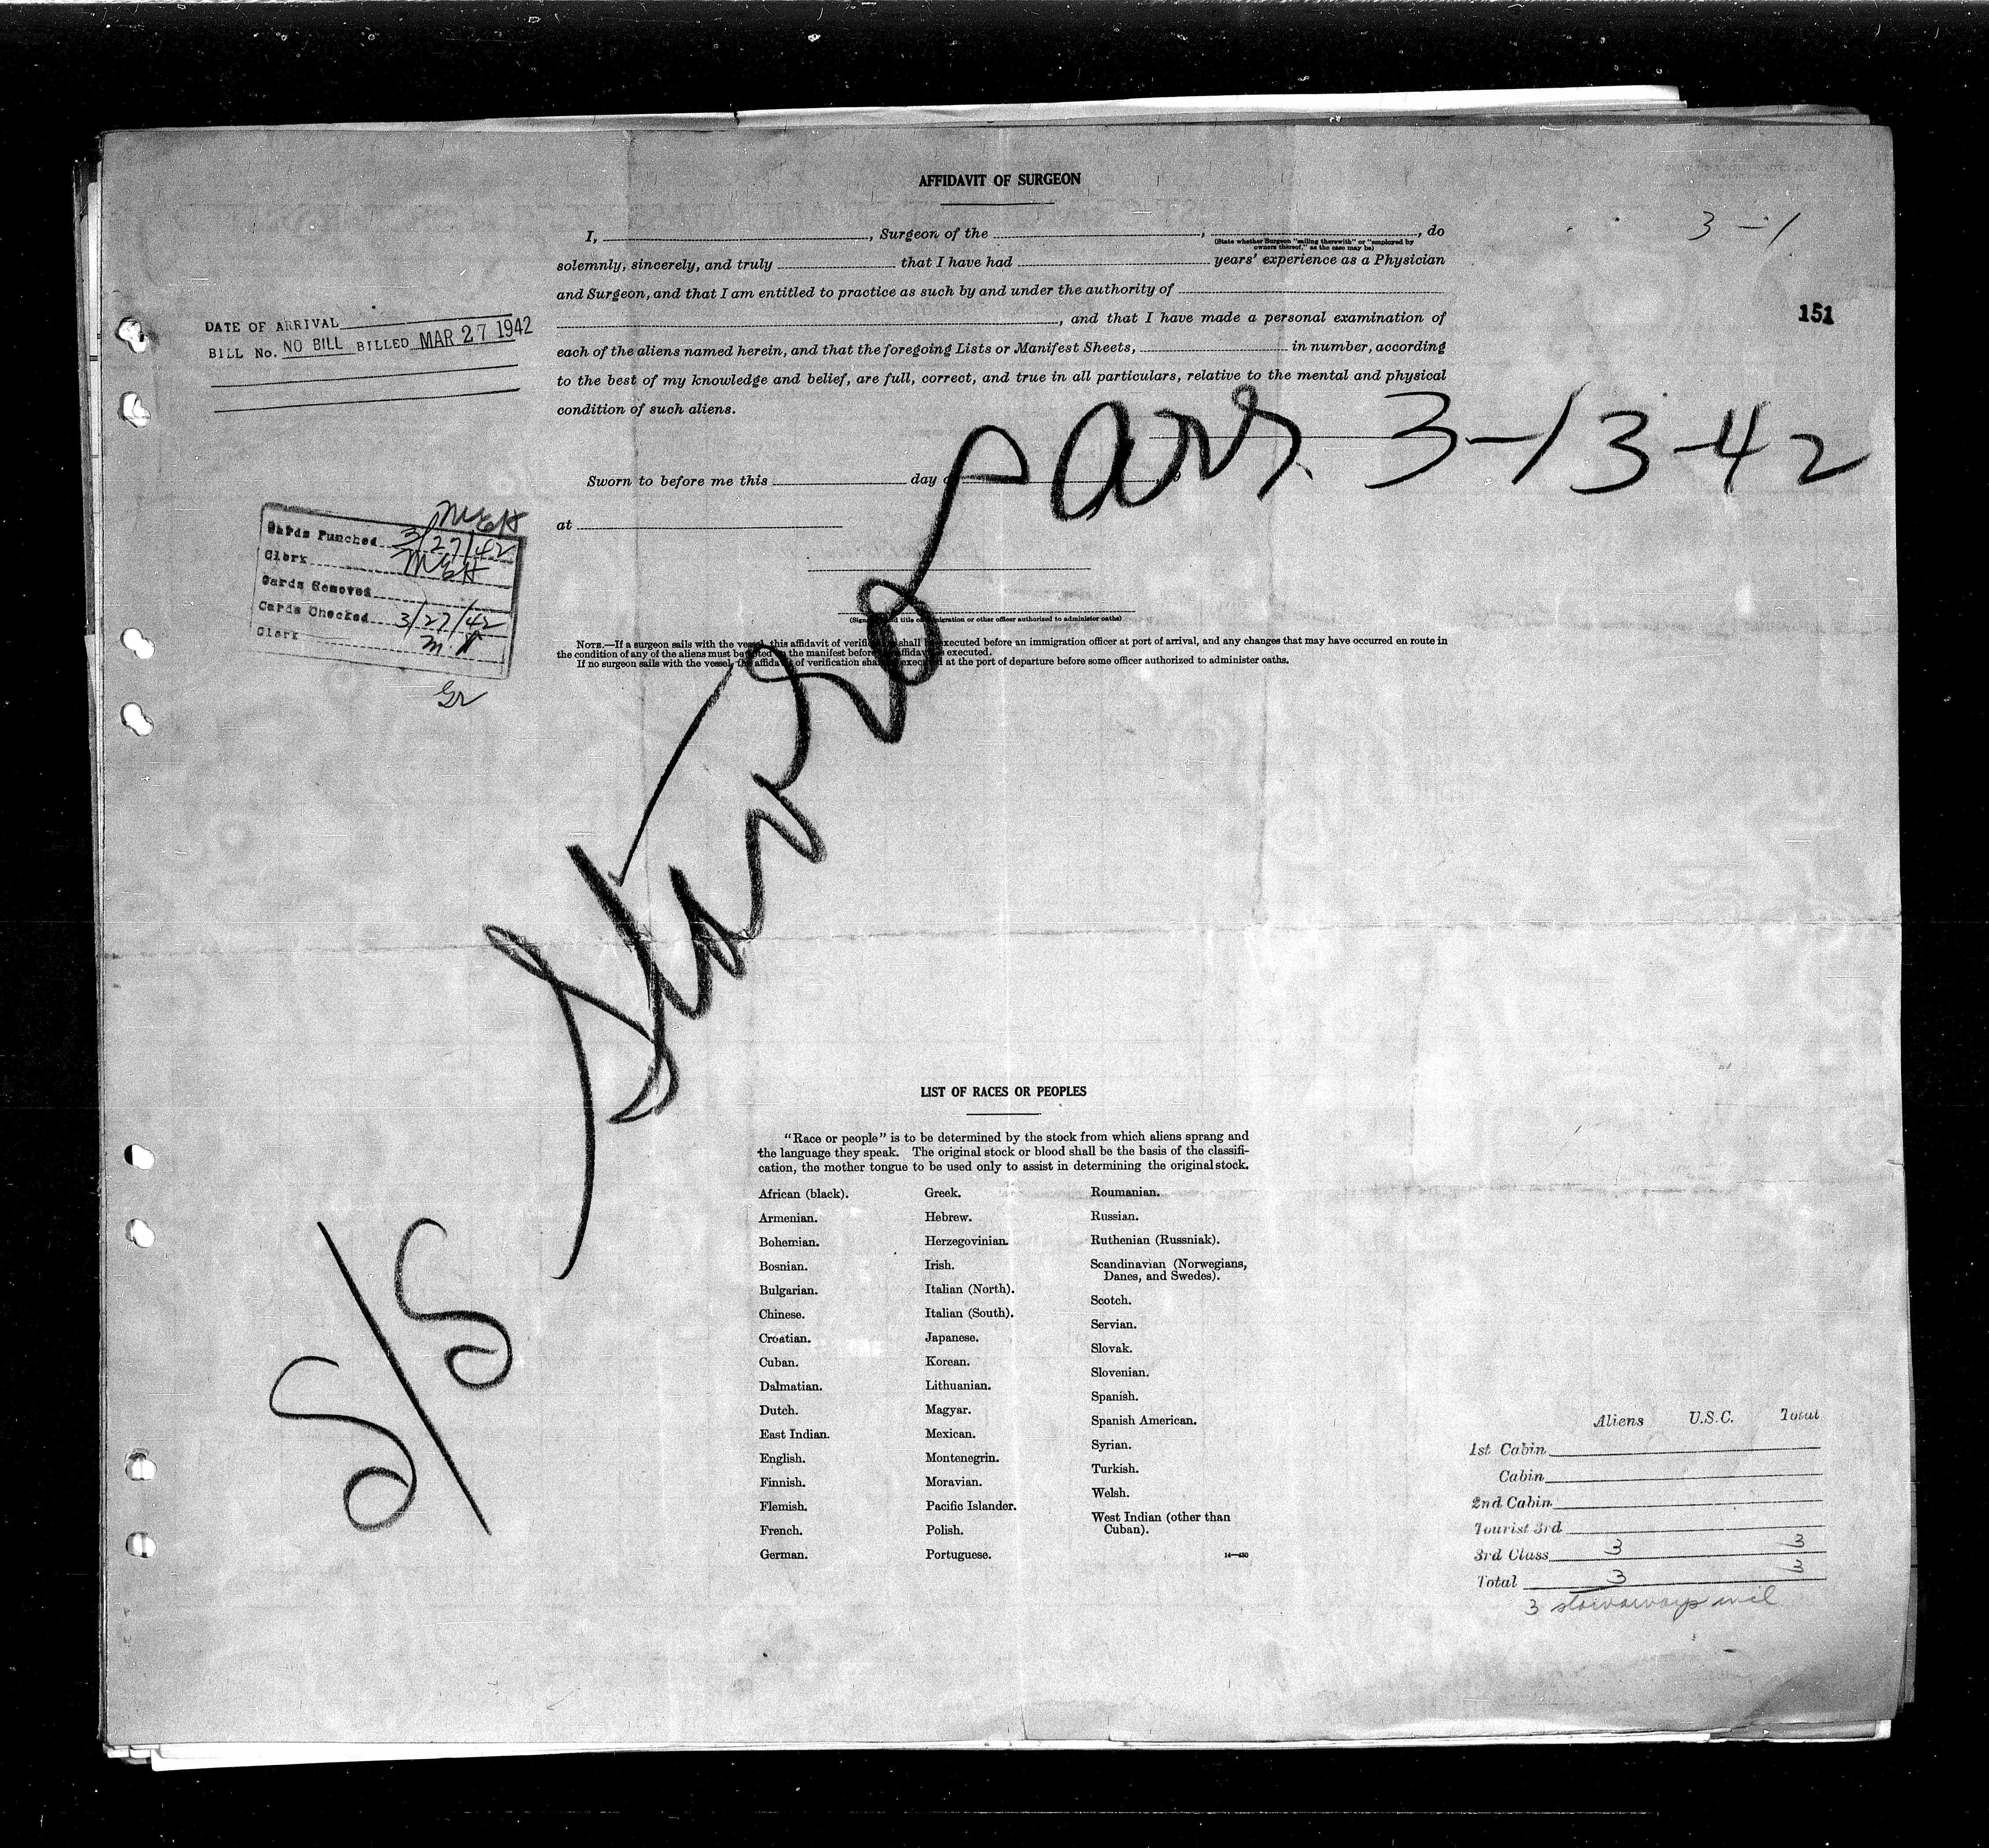 AFFIDAVIT OF SURGEON
3-1
I, , Surgeon of the , , do
(State whether Surgeon "sailing therewith" or "employed by
owners thereof," as the case may be)
solemnly, sincerely, and truly that I have had years' experience as a Physician
and Surgeon, and that I am entitled to practice as such by and under the authority of
, and that I have made a personal examination of
151
each of the aliens named herein, and that the foregoing Lists or Manifest Sheets, in number, according
to the best of my knowledge and belief, are full, correct, and true in all particulars, relative to the mental and physical
condition of such aliens.
DATE OF ARRIVAL
BILL No. NO BILL BILLED MAR 27 1942
arr. 3-13-42
Sworn to before me this day
at
MEH
Cards Punched 3/27/42
Clerk MEH
Cards Removed
Cards Checked 3/27/42
Clerk
(Signature and title of immigration or other officer authorized to administer oaths)
NOTE.—If a surgeon sails with the vessel, this affidavit of verification shall be executed before an immigration officer at port of arrival, and any changes that may have occurred en route in
the condition of any of the aliens must be noted on the manifest before affidavit is executed.
If no surgeon sails with the vessel, the affidavit of verification shall be executed at the port of departure before some officer authorized to administer oaths.
S/S
LIST OF RACES OR PEOPLES
"Race or people" is to be determined by the stock from which aliens sprang and
the language they speak. The original stock or blood shall be the basis of the classifi-
cation, the mother tongue to be used only to assist in determining the original stock.
African (black).
Armenian.
Bohemian.
Bosnian.
Bulgarian.
Chinese.
Croatian.
Cuban.
Dalmatian.
Dutch.
East Indian.
English.
Finnish.
Flemish.
French.
German.
Greek.
Hebrew.
Herzegovinian.
Irish.
Italian (North).
Italian (South).
Japanese.
Korean.
Lithuanian.
Magyar.
Mexican.
Montenegrin.
Moravian.
Pacific Islander.
Polish.
Portuguese.
Roumanian.
Russian.
Ruthenian (Russniak).
Scandinavian (Norwegians,
Danes, and Swedes).
Scotch.
Servian.
Slovak.
Slovenian.
Spanish.
Spanish American.
Syrian.
Turkish.
Welsh.
West Indian (other than
Cuban).
14—430
Aliens U.S.C. Total
1st Cabin
Cabin
2nd Cabin
Tourist 3rd
3rd Class 3 3
Total 3 3
3 stowaways incl